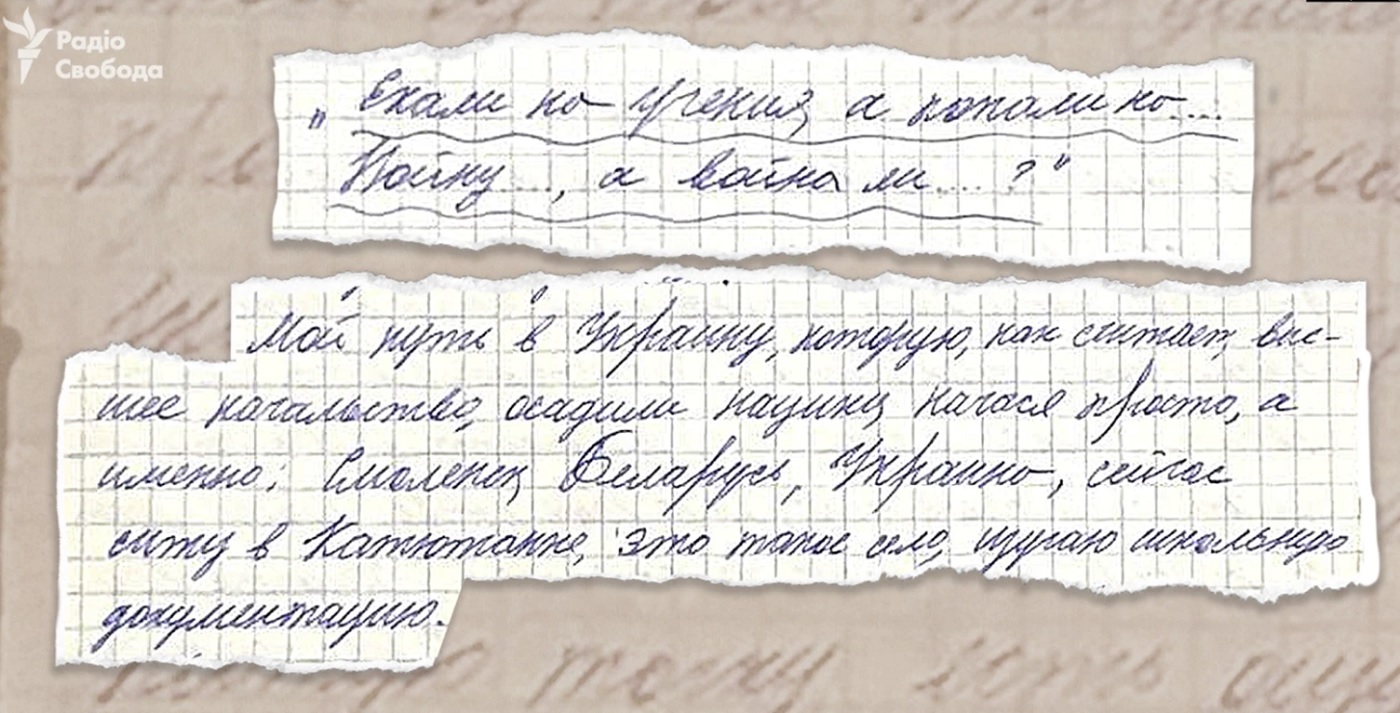 Радіо
Свобода
„ Ехали на учения, а попали на....
Войну..., а война ли....?"
Мой путь в Украину, которую, как считает, выс-
шее начальство, осадили нацики, начася просто, а
именно: Смоленск, Беларусь, Украина, сейчас
сижу в Катюжанке, это такое село, изучаю школьную
документацию.